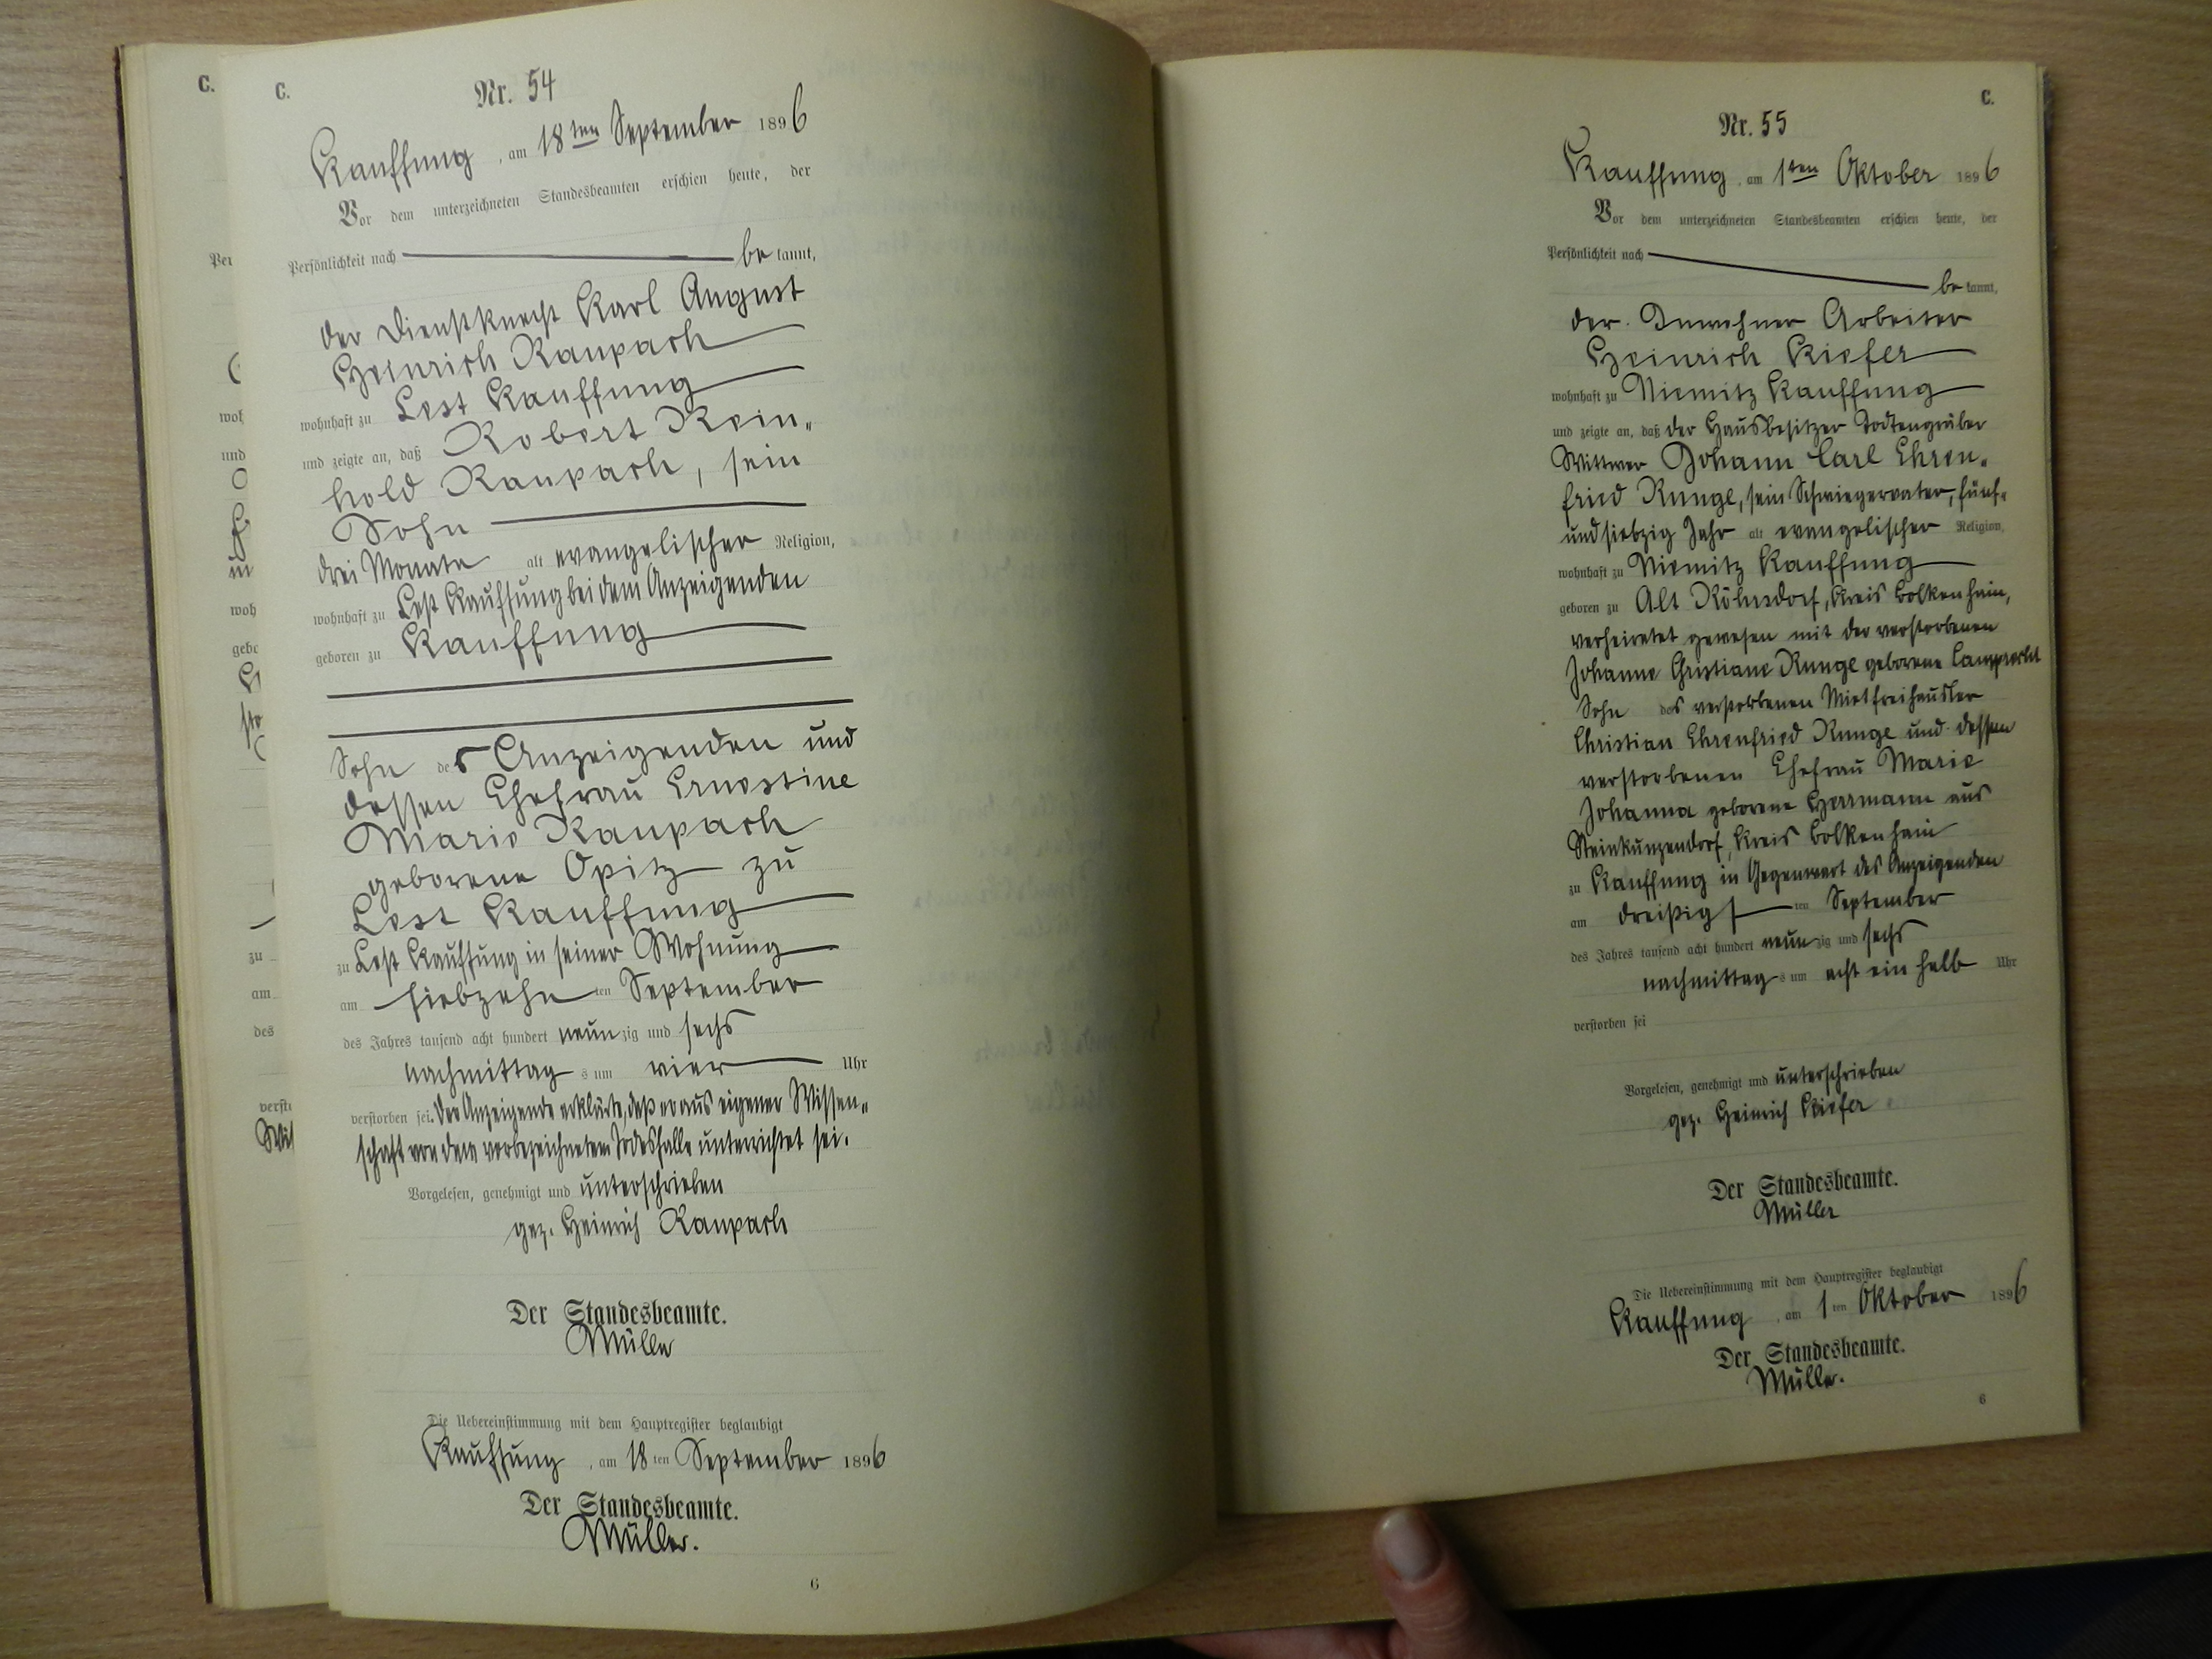 C.
Nr. 54
Kauffung, am 18ten September 1896
Vor dem unterzeichneten Standesbeamten erschien heute, der
Persönlichkeit nach be kannt,
der Dienstknecht Karl August
Heinrich Raupach
wohnhaft zu Lest Kauffung
und zeigte an, daß Robert Rein„
hold Raupach, sein
Sohn
drei Monate alt evangelischer Religion,
wohnhaft zu Lest Kauffung bei dem Anzeigenden
geboren zu Kauffung
Sohn des Anzeigenden und
dessen Ehefrau Ernestine
Marie Raupach
geborene Opitz zu
Lest Kauffung
zu Lest Kauffung in seiner Wohnung
am siebzehn ten September
des Jahres tausend acht hundert neunzig und sechs
nachmittags um vier Uhr
verstorben sei. Der Anzeigende erklärte, daß er aus eigener Wissen„
schaft von dem vorbezeichneten Todesfalle unterrichtet sei.
Vorgelesen, genehmigt und unterschrieben
gez. Heinrich Raupach
Der Standesbeamte.
Müller
Die Uebereinstimmung mit dem Hauptregister beglaubigt
Kauffung, am 18ten September 1896
Der Standesbeamte.
Müller.
6
C.
Nr. 55
Kauffung, am 1ten Oktober 1896
Vor dem unterzeichneten Standesbeamten erschien heute, der
Persönlichkeit nach
be kannt,
der Inwohner Arbeiter
Heinrich Kiefer
wohnhaft zu Niemitz Kauffung
und zeigte an, daß der Hausbesitzer Todtengräber
Wittwer Johann Carl Ehren„
fried Runge, sein Schwiegervater, fünf„
undsiebzig Jahr alt evangelischer Religion,
wohnhaft zu Niemitz Kauffung
geboren zu Alt Röhrsdorf, Kreis Bolkenhain,
verheiretet gewesen mit der verstorbenen
Johanne Christiane Runge geborene
Sohn des verstorbenen Mietfreihäusler
Christian Ehrenfried Runge und dessen
verstorbenen Ehefrau Marie
Johanna geborene Herrmann aus
Steinkunzendorf, Kreis Bolkenhain
zu Kauffung in Gegenwart des Anzeigenden
am dreißigs ten September
des Jahres tausend acht hundert neunzig und sechs
nachmittags um acht ein halb Uhr
verstorben sei
Vorgelesen, genehmigt und unterschrieben
gez. Heinrich Kiefer
Der Standesbeamte.
Müller
Die Uebereinstimmung mit dem Hauptregister beglaubigt
Kauffung, am 1ten Oktober 1896
Der Standesbeamte.
Müller.
6